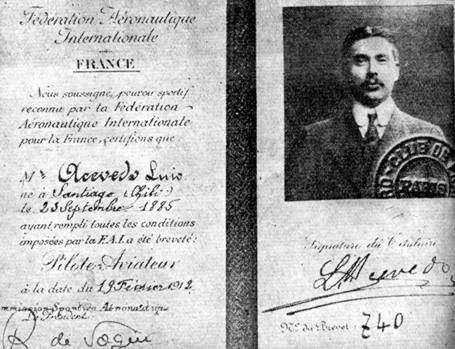 Fédération Aéronautique
Internationale
FRANCE
Nous soussigné, pouvoir sportif
reconnu par la Fédération
Aéronautique Internationale
pour la France, certifions que:
Mr. Acevedo Luis
né à Santiago (Chili)
le 23 Septembre 1885
ayant rempli toutes les conditions
imposées par la F.A.I. a été breveté:
Pilote-Aviateur
à la date du 19 Février 1912
mmission Sportive Aéronautique
Le Président
R de
RO-CLUB DE
PARIS
Signature du Titulaire
L. Acevedo
No. du Brevet 740